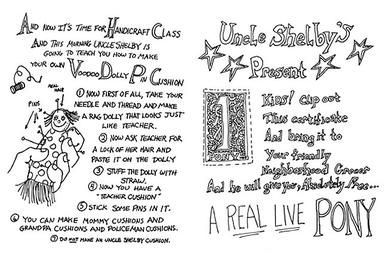 And now it's time for Handicraft Class
And this morning Uncle Shelby is
going to teach you how to make
your own Voodoo Dolly Pin Cushion
Real Hair
Pins
① Now first of all, take your
needle and thread and make
a rag dolly that looks just
like teacher.
② Now ask teacher for
a lock of her hair and
paste it on the dolly
③ Stuff the dolly with
straw.
④ Now you have a
"Teacher Cushion"
⑤ Stick some pins in it.
⑥ You can make mommy cushions and
grandpa cushions and policeman cushions.
⑦ Do not make an Uncle Shelby cushion.
Uncle Shelby's
Present
1
PONY
Kids! Clip out
This certificate
And bring it to
Your friendly
Neighborhood Grocer
And he will give you, Absolutely Free...
A REAL LIVE PONY